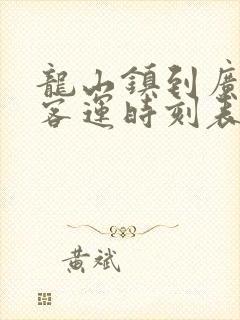 龍山鎮到廣
客運時刻表
黃斌